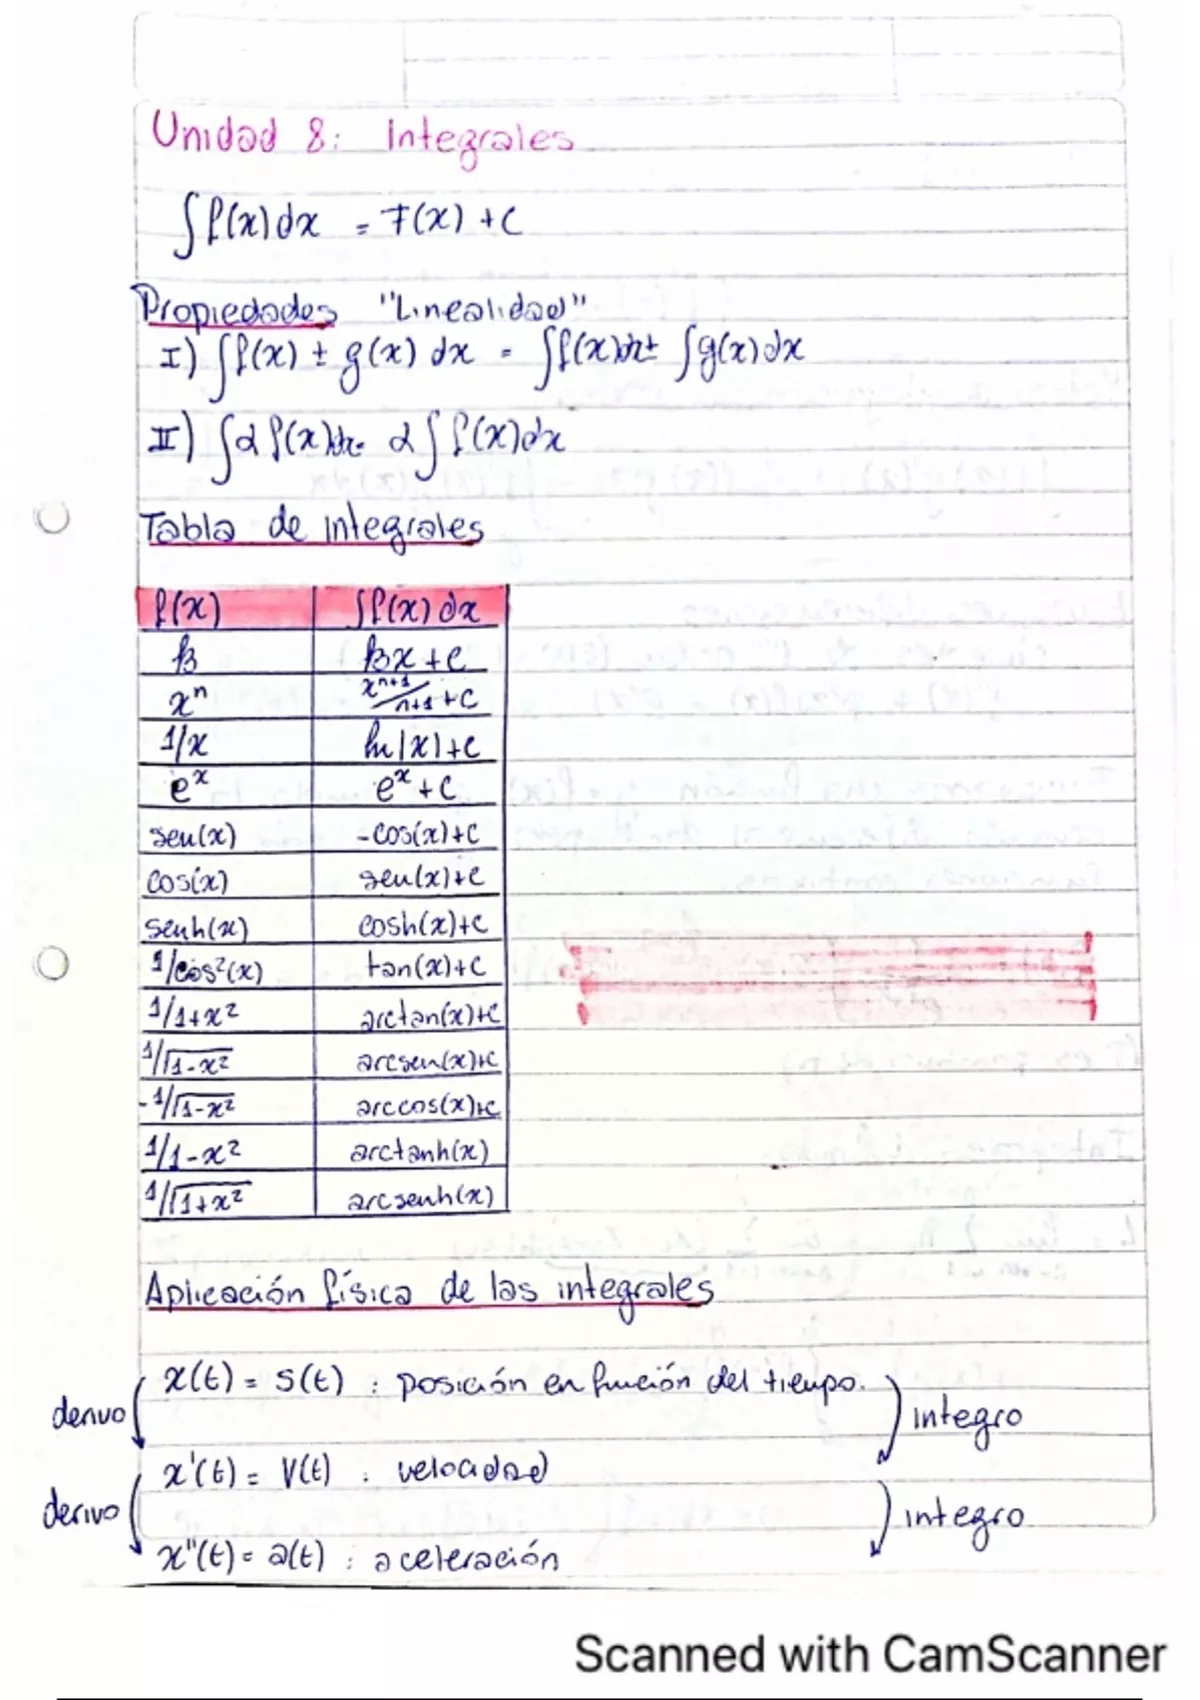 Unidad 8: Integrales
∫f(x)dx = F(x) + C
Propiedades "Linealidad"
I) ∫f(x) ± g(x) dx = ∫f(x)dx ± ∫g(x)dx
II) ∫α f(x)dx = α ∫ f(x)dx
Tabla de integrales
f(x) ∫f(x) dx
k kx + C
xⁿ xⁿ⁺¹/n+1 + C
1/x ln|x| + C
eˣ eˣ + C
sen(x) -cos(x)+C
cos(x) sen(x)+C
senh(x) cosh(x)+C
1/cos²(x) tan(x)+C
1/1+x² arctan(x)+C
1/√1-x² arcsen(x)+C
-1/√1-x² arccos(x)+C
1/1-x² arctanh(x)
1/√1+x² arcsenh(x)
Aplicación física de las integrales
x(t) = s(t) : posición en función del tiempo.
derivo integro
x'(t) = V(t) : velocidad
derivo integro
x"(t) = a(t) : aceleración
Scanned with CamScanner